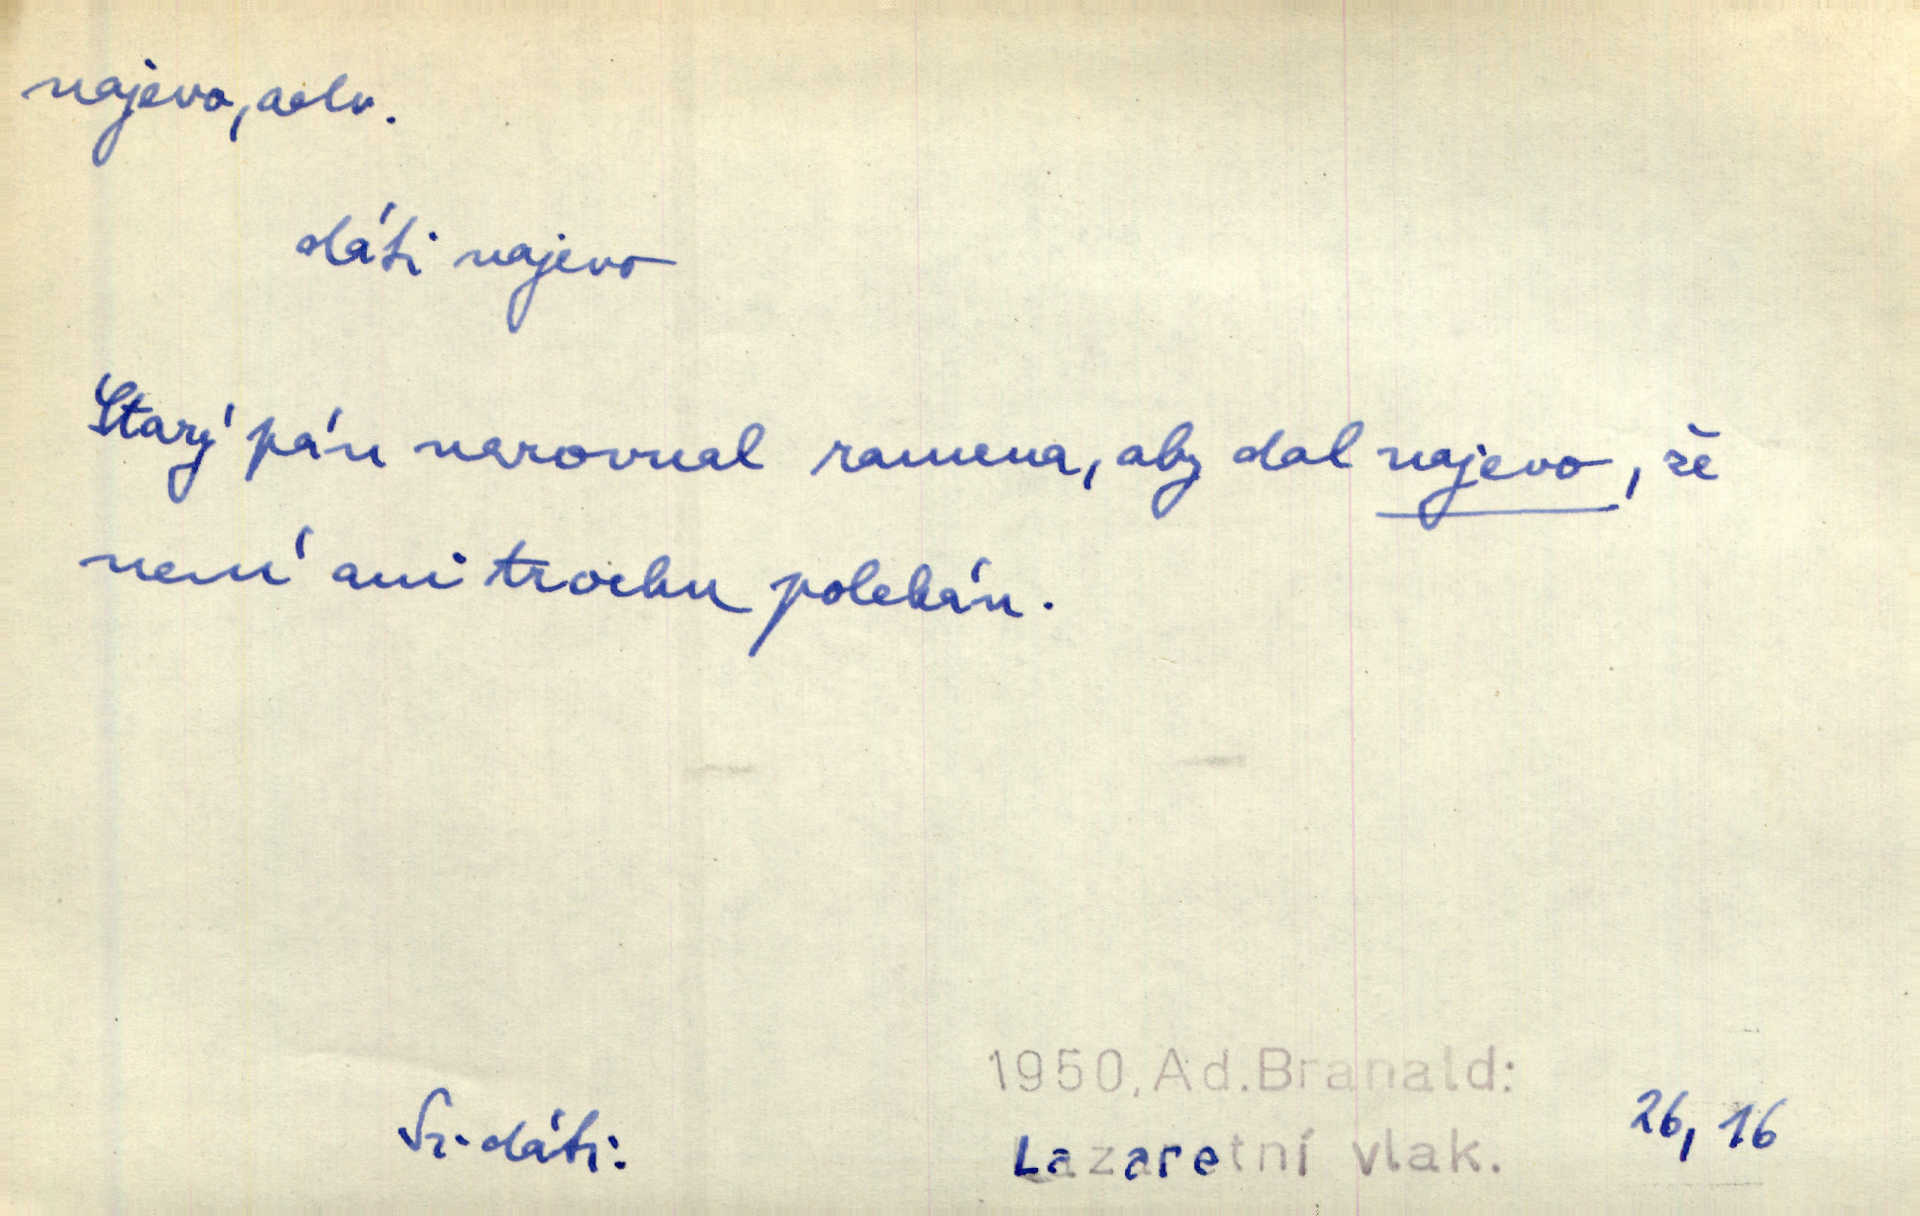 najevo, adv.
dáti najevo
Starý pán narovnal ramena, aby dal najevo, že
není ani trochu polekán.
1950, Ad. Branald:
Sr. dáti:
Lazaretní vlak.
26, 16